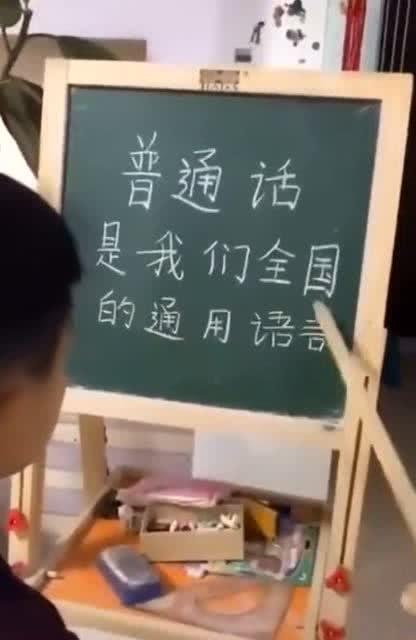 普通话
是我们全国
的通用语言